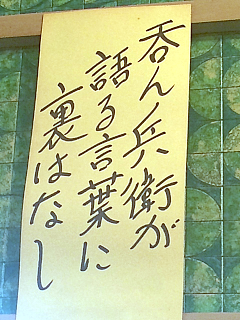 呑ん兵衛が
語る言葉に
裏はなし